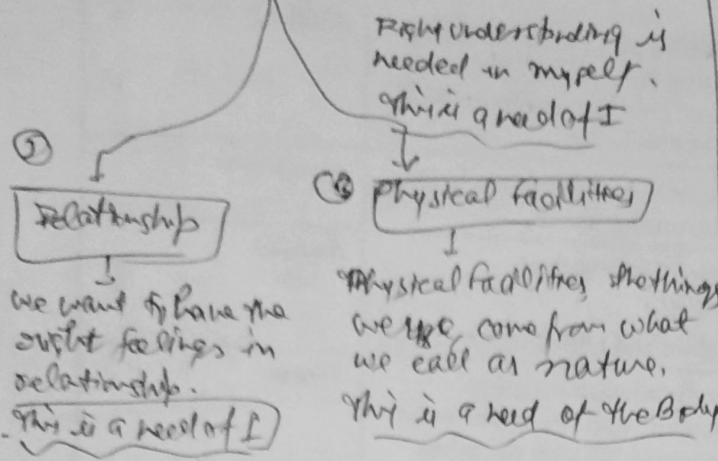 Right understanding is
needed in myself.
This is a need of I
②
Relationship
Physical facilities
we want to have the
right feelings in
relationship.
This is a need of I
Physical facilities, the things
we use, come from what
we call as nature.
This is a need of the Body